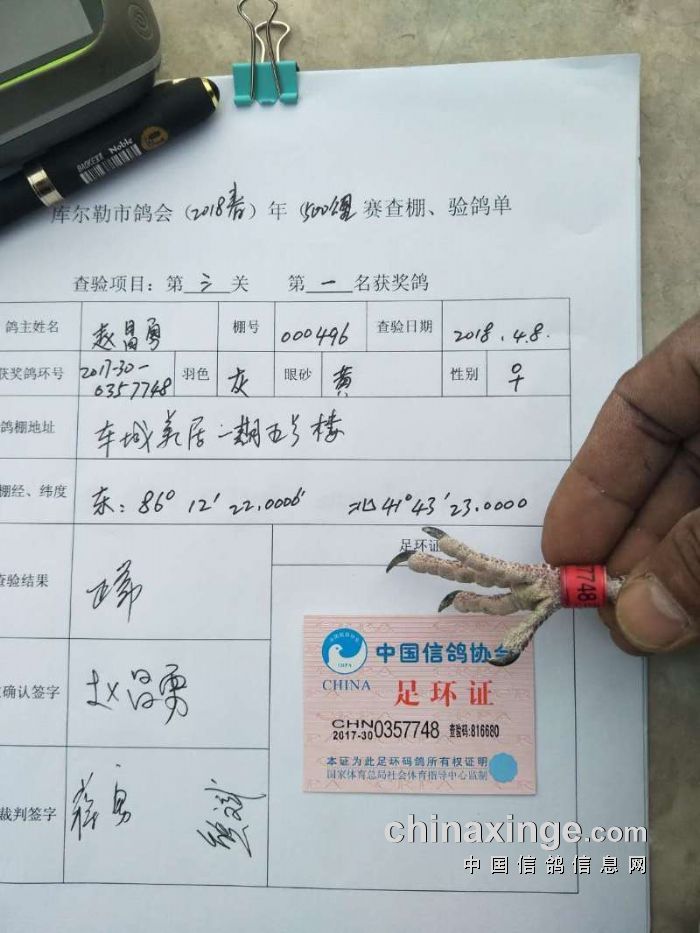 BAOKE宝克 Noble
库尔勒市鸽会（2018春）年 500公里 赛查棚、验鸽单
查验项目：第 三 关 第 一 名获奖鸽
鸽主姓名 赵昌勇 棚号 000496 查验日期 2018.4.8.
获奖鸽环号 2017-30-0357748 羽色 灰 眼砂 黄 性别 ♀
鸽棚地址 车城美居二期五号楼
棚经、纬度 东：86° 12′ 22.0006″ 北41°43′23.0000
足环证
查验结果 正常
7748
确认签字 赵昌勇
中国信鸽协会
CHPA
CHINA 足环证
CHN
2017-30 0357748 查验码:816680
本证为此足环码鸽所有权证明
国家体育总局社会体育指导中心监制
裁判签字
chinaxinge.com
中国信鸽信息网